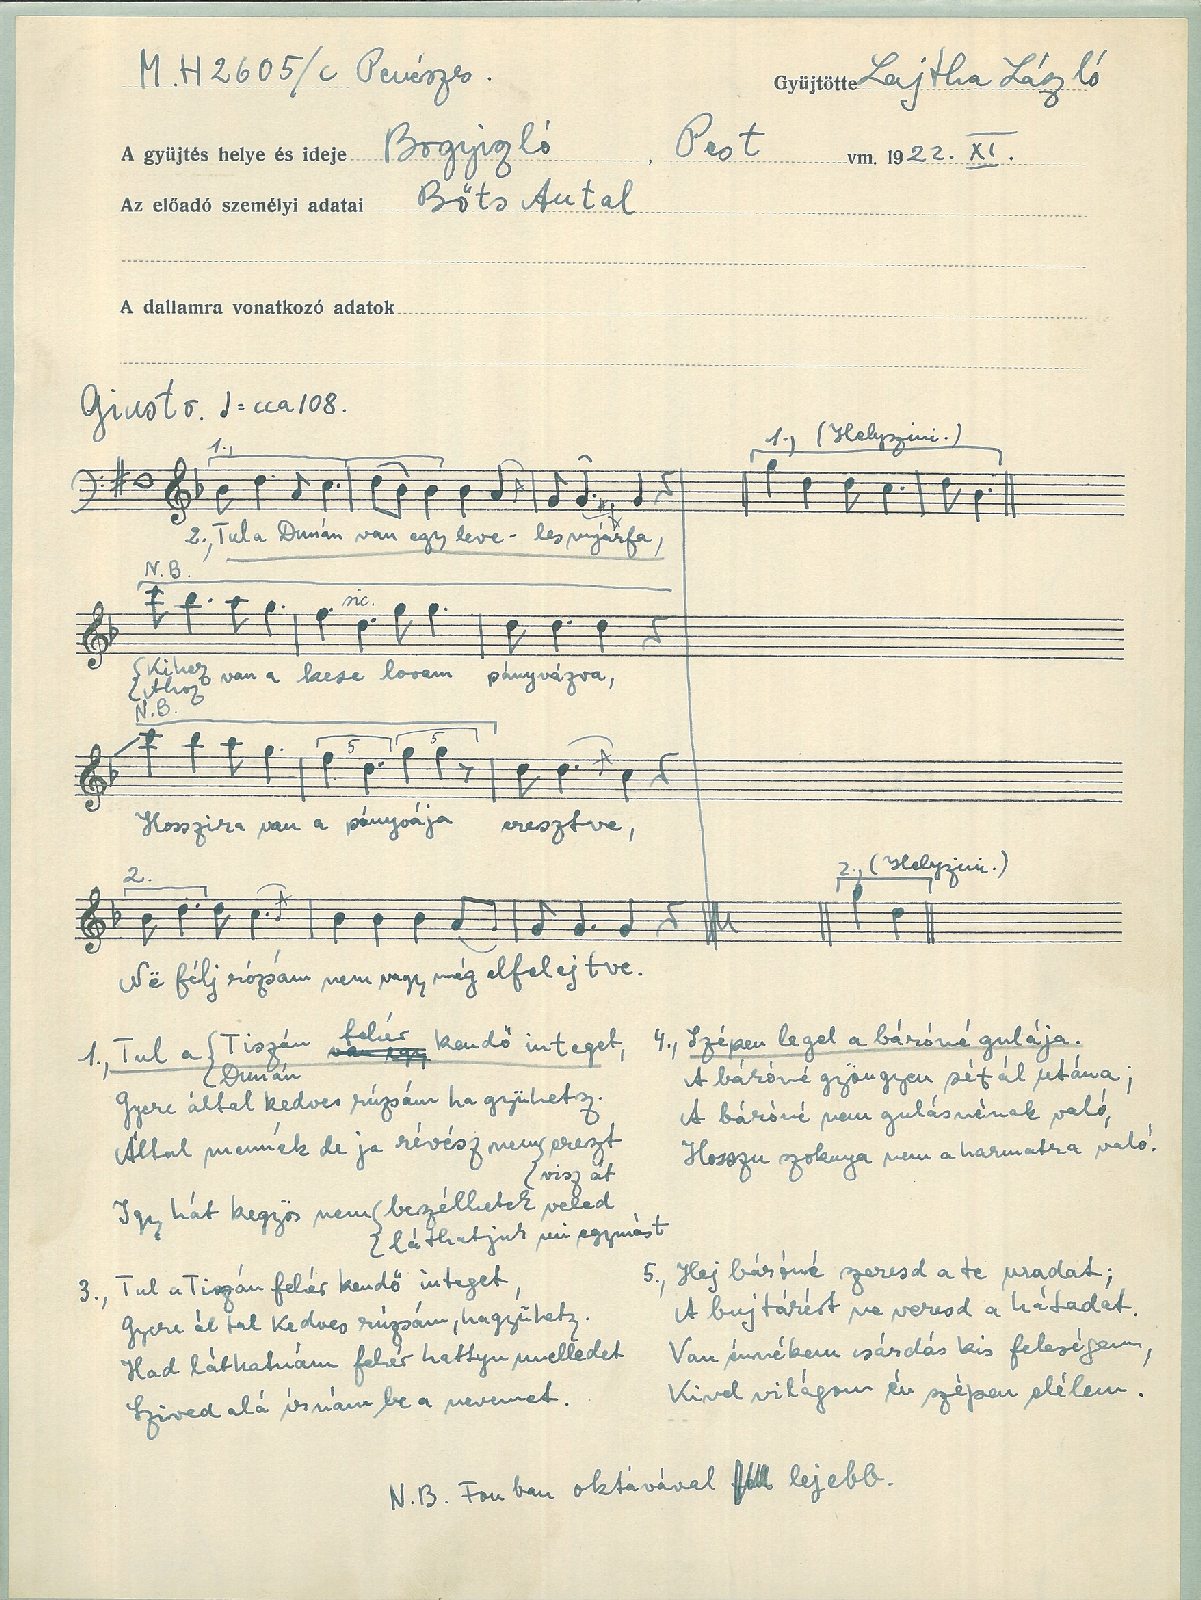 M.H 2605/c Penészes.
Gyüjtötte Lajtha László
A gyüjtés helye és ideje Bogyizló, Pest vm. 1922. XI.
Az előadó személyi adatai Bőts Antal
A dallamra vonatkozó adatok
Giusto. ♩= cca 108.
1., 1., (Helyszini.)
2., Tul a Dunán van egy leve- les nyárfa,
N.B. sic.
{Kihez {Ahoz van a kese lovam pányvázva,
N.B. 5 5
Hosszira van a pányvája eresztve,
2. 2., (Helyszini.)
Në félj rózsám nem vagy még elfelejtve.
1., Tul a {Tiszán {Dunán fehér kendő integet,
Gyere által kedves rúzsám ha gyühetz.
Által mennék de ja révész nem {ereszt
{visz át
Igy hát kegyös nem {bezélhetek veled
{láthatjuk mi egymást
3., Tul a Tiszán fehér kendő integet,
Gyere által kedves rúzsám, hagyühetz.
Had láthatnám fehér hattyu melledet
Szived alá irnám be a nevemet.
4., Szépen legel a báróné gulája.
A báróné gyöngyen sétál utána;
A báróné nem gulásnénak való,
Hosszu szoknya nem a harmatra való.
5., Hej báróné szeresd a te uradat;
A bujtárért ne veresd a hátadat.
Van énnékem csárdás kis feleségem,
Kivel világom én szépen elélem.
N.B. Fon ban oktávával lejebb.